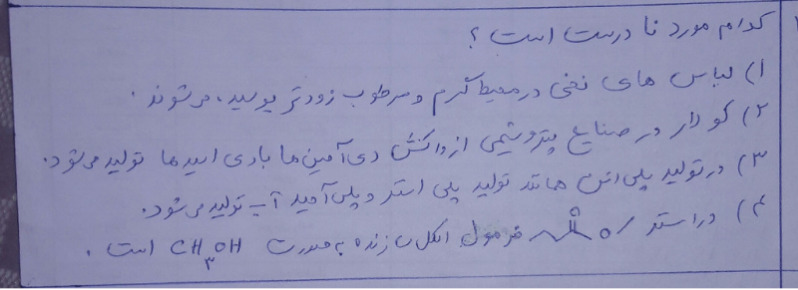 کدام مورد نا درست است؟
۱) لباس های نخی در محیط گرم و مرطوب زودتر پوسیده می شوند.
۲) کولار در صنایع پتروشیمی از واکنش دی آمین ها با دی اسید ها تولید می شود.
۳) در تولید پلی اتن مانند تولید پلی استر و پلی آمید آب تولید می شود.
۴) در استر O O فرمول الکل سازنده به صورت CH3OH است.